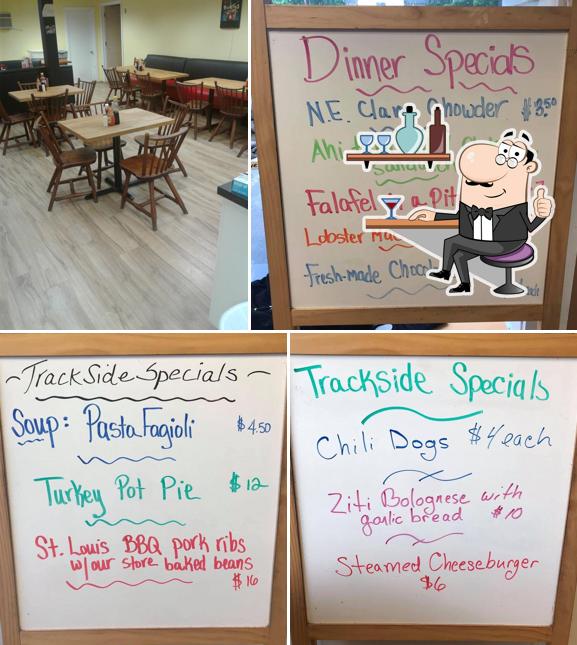 Dinner Specials
N.E. Clam Chowder $3.50
Ahi
Falafel a Pit 7
Lobster Mac
Fresh-made
~Trackside Specials~
Soup: Pasta Fagioli $4.50
Turkey Pot Pie $12
St. Louis BBQ pork ribs
w/our store baked beans
$16
Trackside Specials
Chili Dogs $4 each
Ziti Bolognese with
garlic bread $10
Steamed Cheeseburger
$6